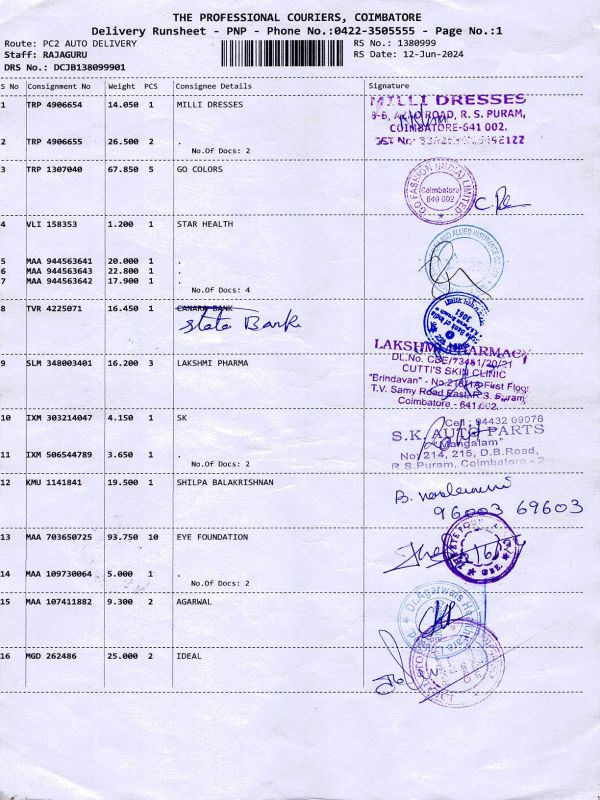 THE PROFESSIONAL COURIERS, COIMBATORE
Delivery Runsheet - PNP - Phone No.:0422-3505555 - Page No.:1
Route: PC2 AUTO DELIVERY RS No.: 1380999
Staff: RAJAGURU RS Date: 12-Jun-2024
DRS No.: DCJB138099901
S No Consignment No Weight PCS Consignee Details Signature
1 TRP 4906654 14.050 1 MILLI DRESSES
MILLI DRESSES
ROAD, R. S. PURAM,
COIMBATORE-641 002.
2 TRP 4906655 26.500 2 .
No.Of Docs: 2
3 TRP 1307040 67.850 5 GO COLORS
GO FASHION (INDIA) LIMITED
Coimbatore
640 002
4 VLI 158353 1.200 1 STAR HEALTH
AND ALLIED INSURANCE CO
5 MAA 944563641 20.000 1 .
6 MAA 944563643 22.800 1 .
7 MAA 944563642 17.900 1 .
No.Of Docs: 4
8 TVR 4225071 16.450 1 CANARA BANK
State Bank
9 SLM 348003401 16.200 3 LAKSHMI PHARMA
LAKSHMI PHARMACY
DL.No. CBE/73481/20/21
CUTTI'S SKIN CLINIC
"Brindavan" - No. First Floor
T.V. Samy Road East, R.S. Puram
Coimbatore - 641 002.
10 IXM 303214047 4.150 1 SK
Cell : 94432 09076
S.K. AUTO PARTS
"Mangalam"
No: 214, 215, D.B.Road,
R.S.Puram, Coimbatore - 2
11 IXM 506544789 3.650 1 .
No.Of Docs: 2
12 KMU 1141841 19.500 1 SHILPA BALAKRISHNAN
96003 69603
13 MAA 703650725 93.750 10 EYE FOUNDATION
THE EYE FOUN
14 MAA 109730064 5.000 1 .
No.Of Docs: 2
15 MAA 107411882 9.300 2 AGARWAL
Dr.Agarwals Healthcare
16 MGD 262486 25.000 2 IDEAL